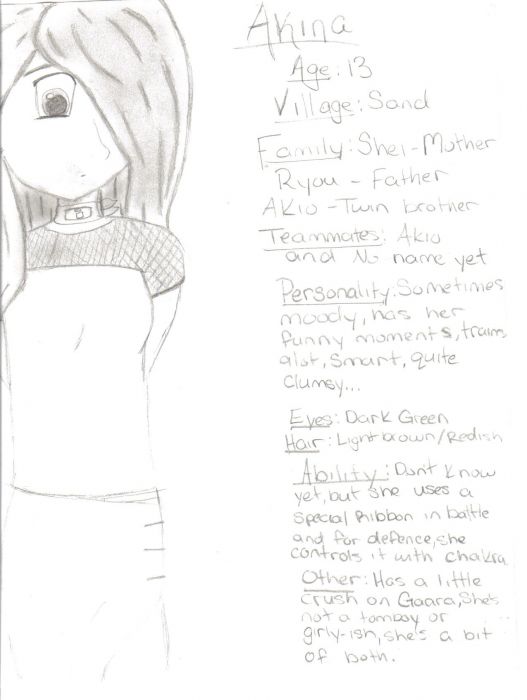 Akina
Age: 13
Village: Sand
Family: Shei - Mother
Ryou - Father
Akio - Twin brother
Teammates: Akio
and No name yet
Personality: Sometimes
moody, has her
funny moments, trains
alot, Smart, quite
clumsy...
Eyes: Dark Green
Hair: Light brown/Redish
Ability: Dont know
yet, but she uses a
special Ribbon in battle
and for defence, she
controls it with chakra
Other: Has a little
crush on Gaara, She's
not a tomboy or
girly-ish, she's a bit
of both.